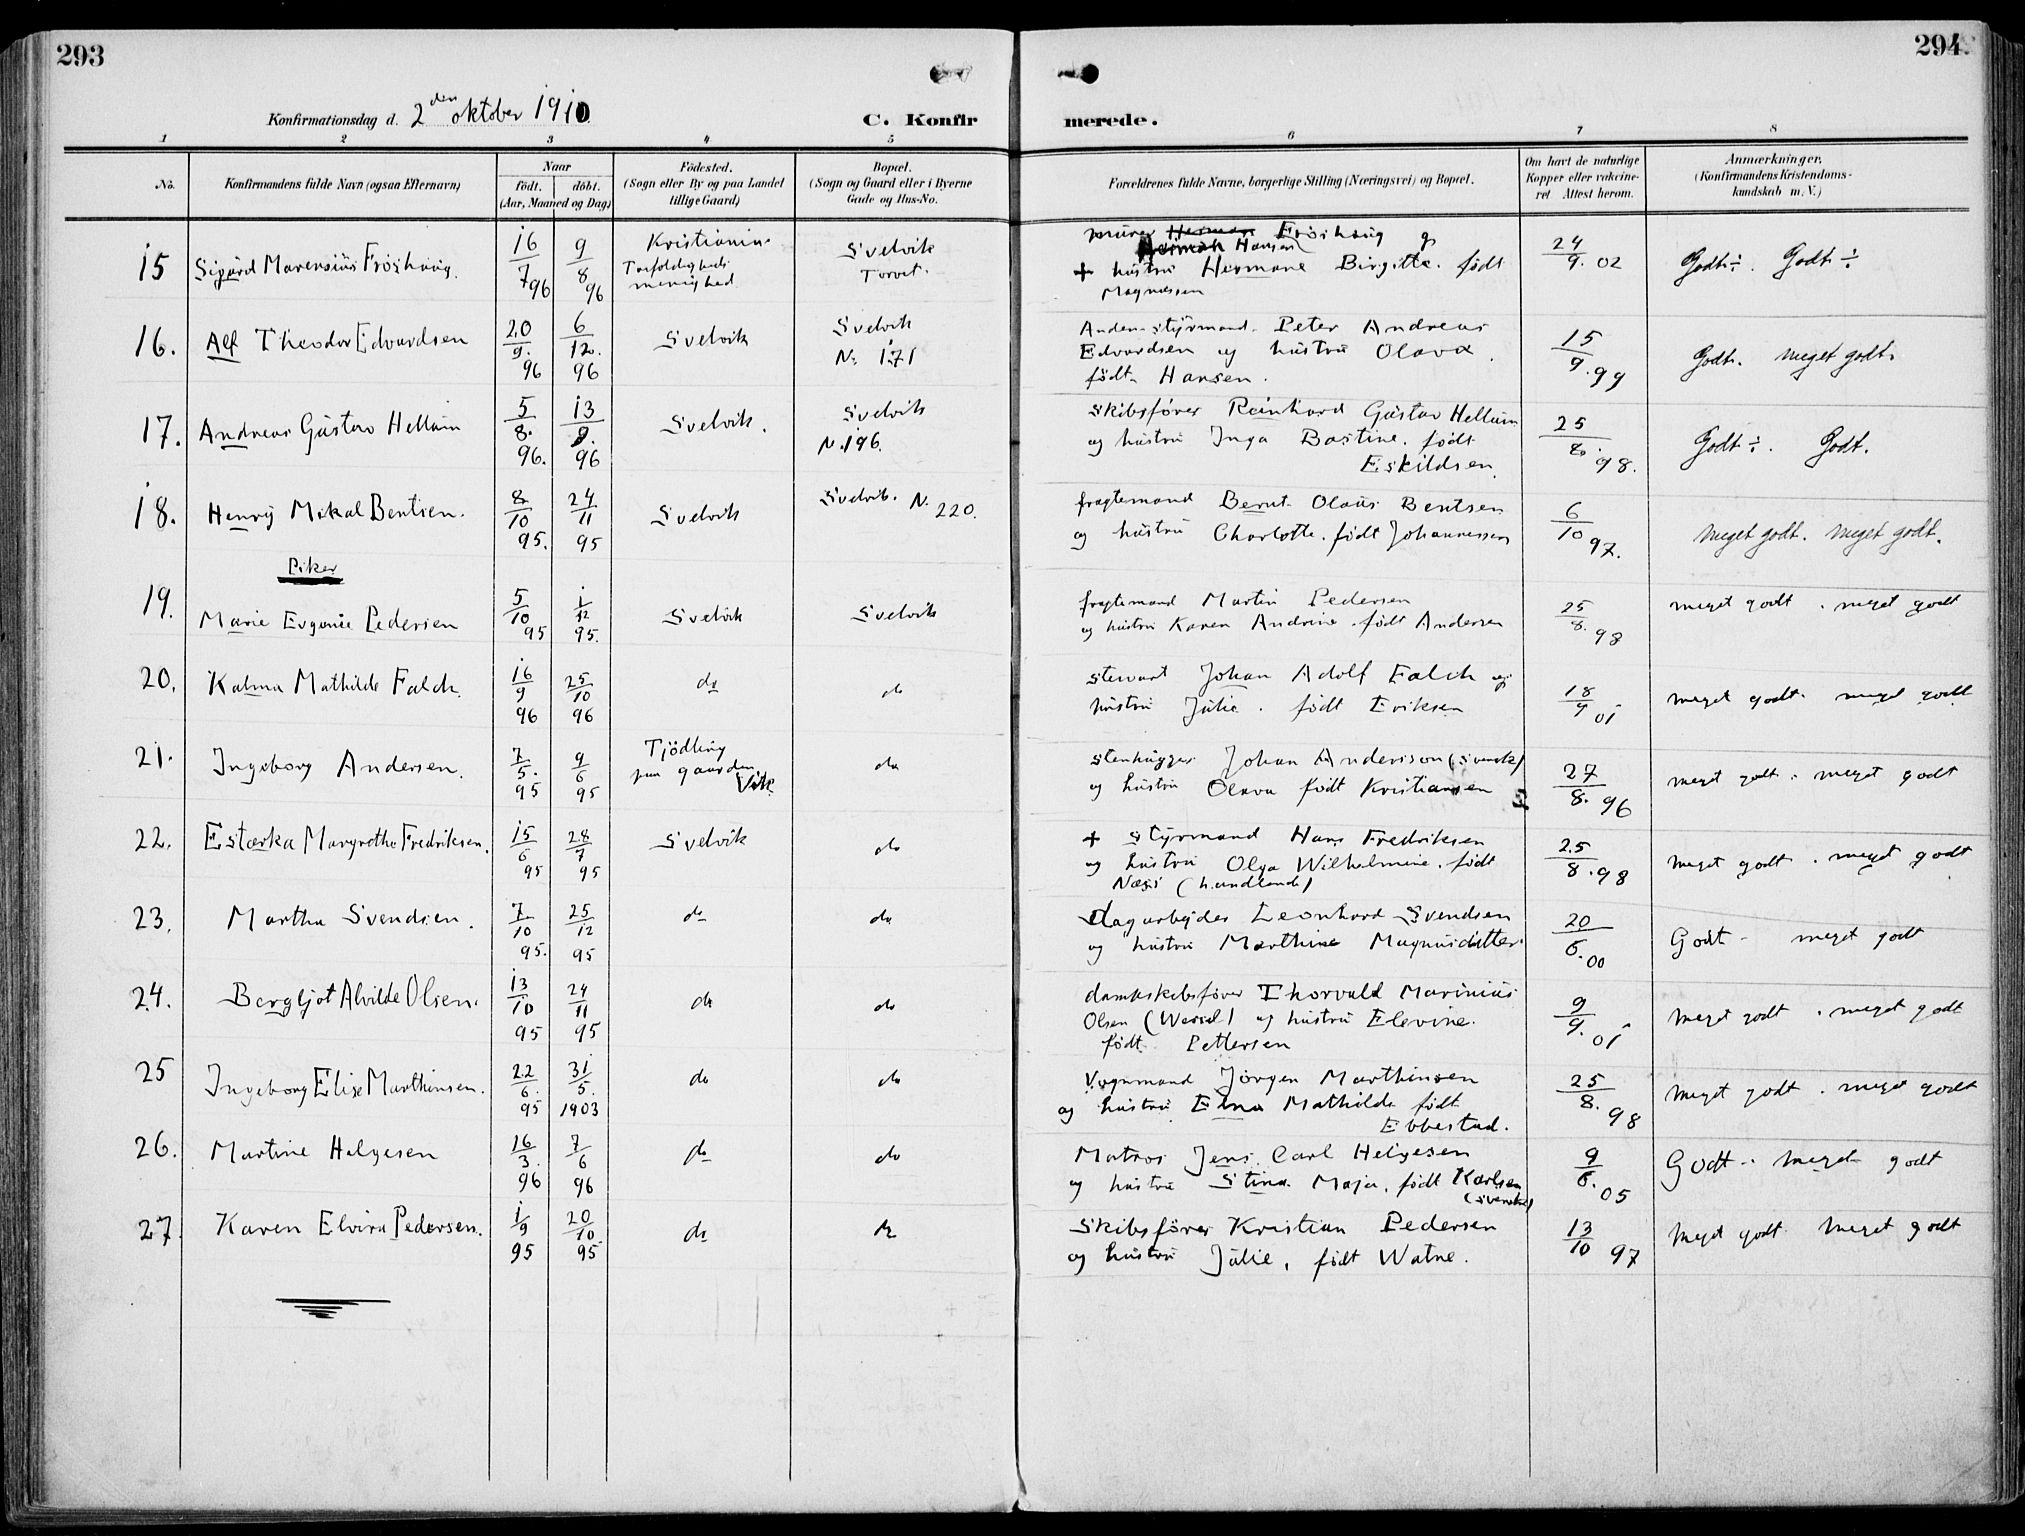 293
294.
Konfirmationsdag d. 2den oktober 1910
C. Konfirmerede.
1 2 3 4 5 6 7 8
No. | Konfirmandens fulde Navn (ogsaa Efternavn) | Naar født. døbt. (Aar, Maaned og Dag) | Fødested. (Sogn eller By og paa Landet tillige Gaard) | Bopæl. (Sogn og Gaard eller i Byerne Gade og Hus-No. | Forældrenes fulde Navne, borgerlige Stilling (Næringsvei) og Bopæl. | Om havt de naturlige Kopper eller vaksineret Attest herom. | Anmærkninger. (Konfirmandens Kristendomskundskab m. V.)
15 Sigurd Marensius Frøshaug. 16/7 96 9/8 96 Kristiania Trefoldigheds menighed Svelvik Torvet.
murer Herman Frøshaug og
Herman Hansen
+ hustru Hermane Birgitte. født
Magnussen
24/9. 02 Godt÷. Godt÷
16. Alf Theodor Edvardsen 20/9. 96 6/12. 96 Svelvik Svelvik N: 171
Anden-styrmand Peter Andreas
Edvardsen og hustru Olava.
født Hansen.
15/9. 99 Godt. meget godt.
17. Andreas Gustav Hellum 5/8. 96. 13/9. 96 Svelvik. Svelvik N. 196.
Skibsfører Reinhard Gustav Hellum
og hustru Inga Bastine. født
Eskildsen.
25/8. 98. Godt÷. Godt.
18. Henry Mikal Bentsen. 8/10 95. 24/11 95 Svelvik Svelvik. N. 220.
fragtemand Bernt Olaus Bentsen
og hustru Charlotte. født Johannessen
6/10 97. Meget godt. meget godt.
Piker
19. Marie Eugenie Pedersen 5/10 95 1/12 95. Svelvik Svelvik
fragtemand Martin Pedersen
og hustru Karen Andrine. født Andersen
25/8. 98 meget godt. meget godt
20. Kalma Mathilde Falch. 16/9 96 25/10 96 do do
stewart Johan Adolf Falch og
hustru Julie. født Eriksen
18/9 01 meget godt. meget godt
21. Ingeborg Andersen. 7/5. 95 9/6 95 Tjødling paa gaarden Vik do
stenhugger Johan Andersson (svensk)
og hustru Olava født Kristiansen
27/8. 96 meget godt. meget godt
22. Estærka Margrethe Fredriksen. 15/6 95 28/7 95 Svelvik do
+ styrmand Hans Fredriksen
og hustru Olga Wilhelmine. født
Næss (handlende)
25/8. 98 meget godt. meget godt
23. Martha Svendsen. 7/10 95. 25/12 95 do do
dagarbeider Leonhard Svendsen
og hustru Marthine Magnusdatter
20/6. 00 Godt - meget godt
24. Bergljot Alvilde Olsen. 13/10 95 24/11 95 do do
dampskibsfører Thorvald Marinius
Olsen (Wessel) og hustru Elevine.
født Pettersen
9/9. 01 Meget godt. meget godt
25 Ingeborg Elise Marthinsen. 22/6. 95 31/5. 1903 do do
Vognmand Jørgen Marthinsen
og hustru Elna Mathilde født
Ebbestad.
25/8. 98 Meget godt. meget godt
26. Martine Helgesen 16/3. 96 7/6 96 do do
Matros Jens Carl Helgesen
og hustru Stina Maja. født Karlsen
(svenske)
9/6. 05 Godt - meget godt
27. Karen Elvira Pedersen. 1/9 95 20/10 95 do
Skibsfører Kristian Pedersen
og hustru Julie, født Watne.
13/10 97 Meget godt. Meget godt